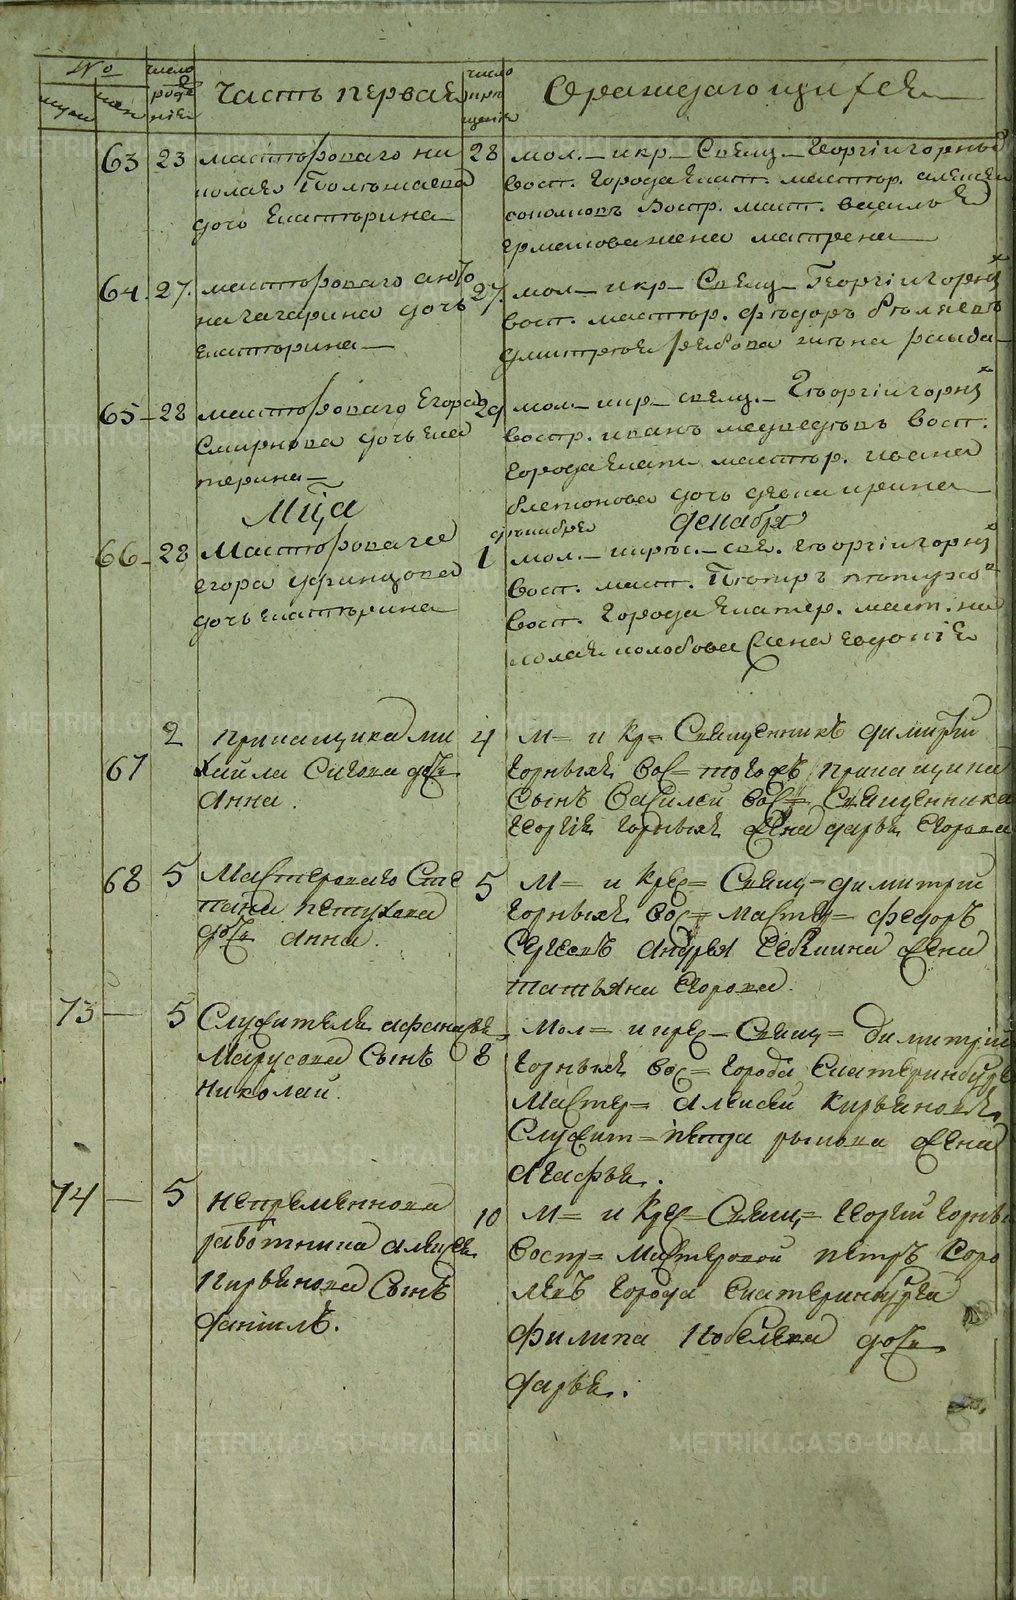 METRIKI.GASO-URAL.RU
№
число
рожде
нія
Часть первая
число
кре
щенія
О раждающихся
муж
жен
63 23 мастероваго ни
колая
дочь Екатерина
28 мол. и кр. Свящ. Георгій горных
восп. города Екат. мастер. алексей
соколовъ Воспр. маст. василья
ермакова жена матрена
64. 27. мастероваго
дочь
екатерина
27. мол. и кр. Свящ. Георгій горных
восп. мастер. федоръ
дмитрея рябова жена
65 28 мастероваго Егора
Смирнова дочь ека
терина
29 мол. и кр. свящ. Георгій горных
воспр. иванъ медведевъ восп.
города екат. мастер. ивана
платонова дочь девка ирина
Мца декабря
66 28 Мастероваго
егора
дочь екатерина
декабря
1 мол. и крес. свя. георгій горных
восп. маст. Петръ
восп. города екатер. маст. ни
колая колобова жена евдокія
67 2 прикащика ми
хайла Сигова дочь
Анна.
4 М= и кр= Священникъ димитрій
Горныхъ вос= тогожъ прикащика
сынъ Василей вос= Священника
Георгія Горныхъ жена дарья Егорова
68 5 Мастероваго Сте
пана петухова
дочь анна.
5 М= и крес= Свящ= димитрій
Горныхъ вос= мастер= федоръ
андрея жена
татьяна Егорова.
73 — 5 Служителя афанасья
Марусова Сынъ
Николай.
8 Мол= и крес= Свящ= димитрій
Горныхъ вос= города Екатеринбурга
Мастер= алексей кирьяновъ,
Служит= петра рыкова жена
Агафья.
74 — 5 Непременнова
работника алексея
кирьянова Сынъ
даніилъ.
10 М= и Крес= Свящ= Георгій Горных
воспр= Мастеровой петръ Коро
левъ города екатеринбурга
филипа кобелева дочь
дарья.
METRIKI.GASO-URAL.RU